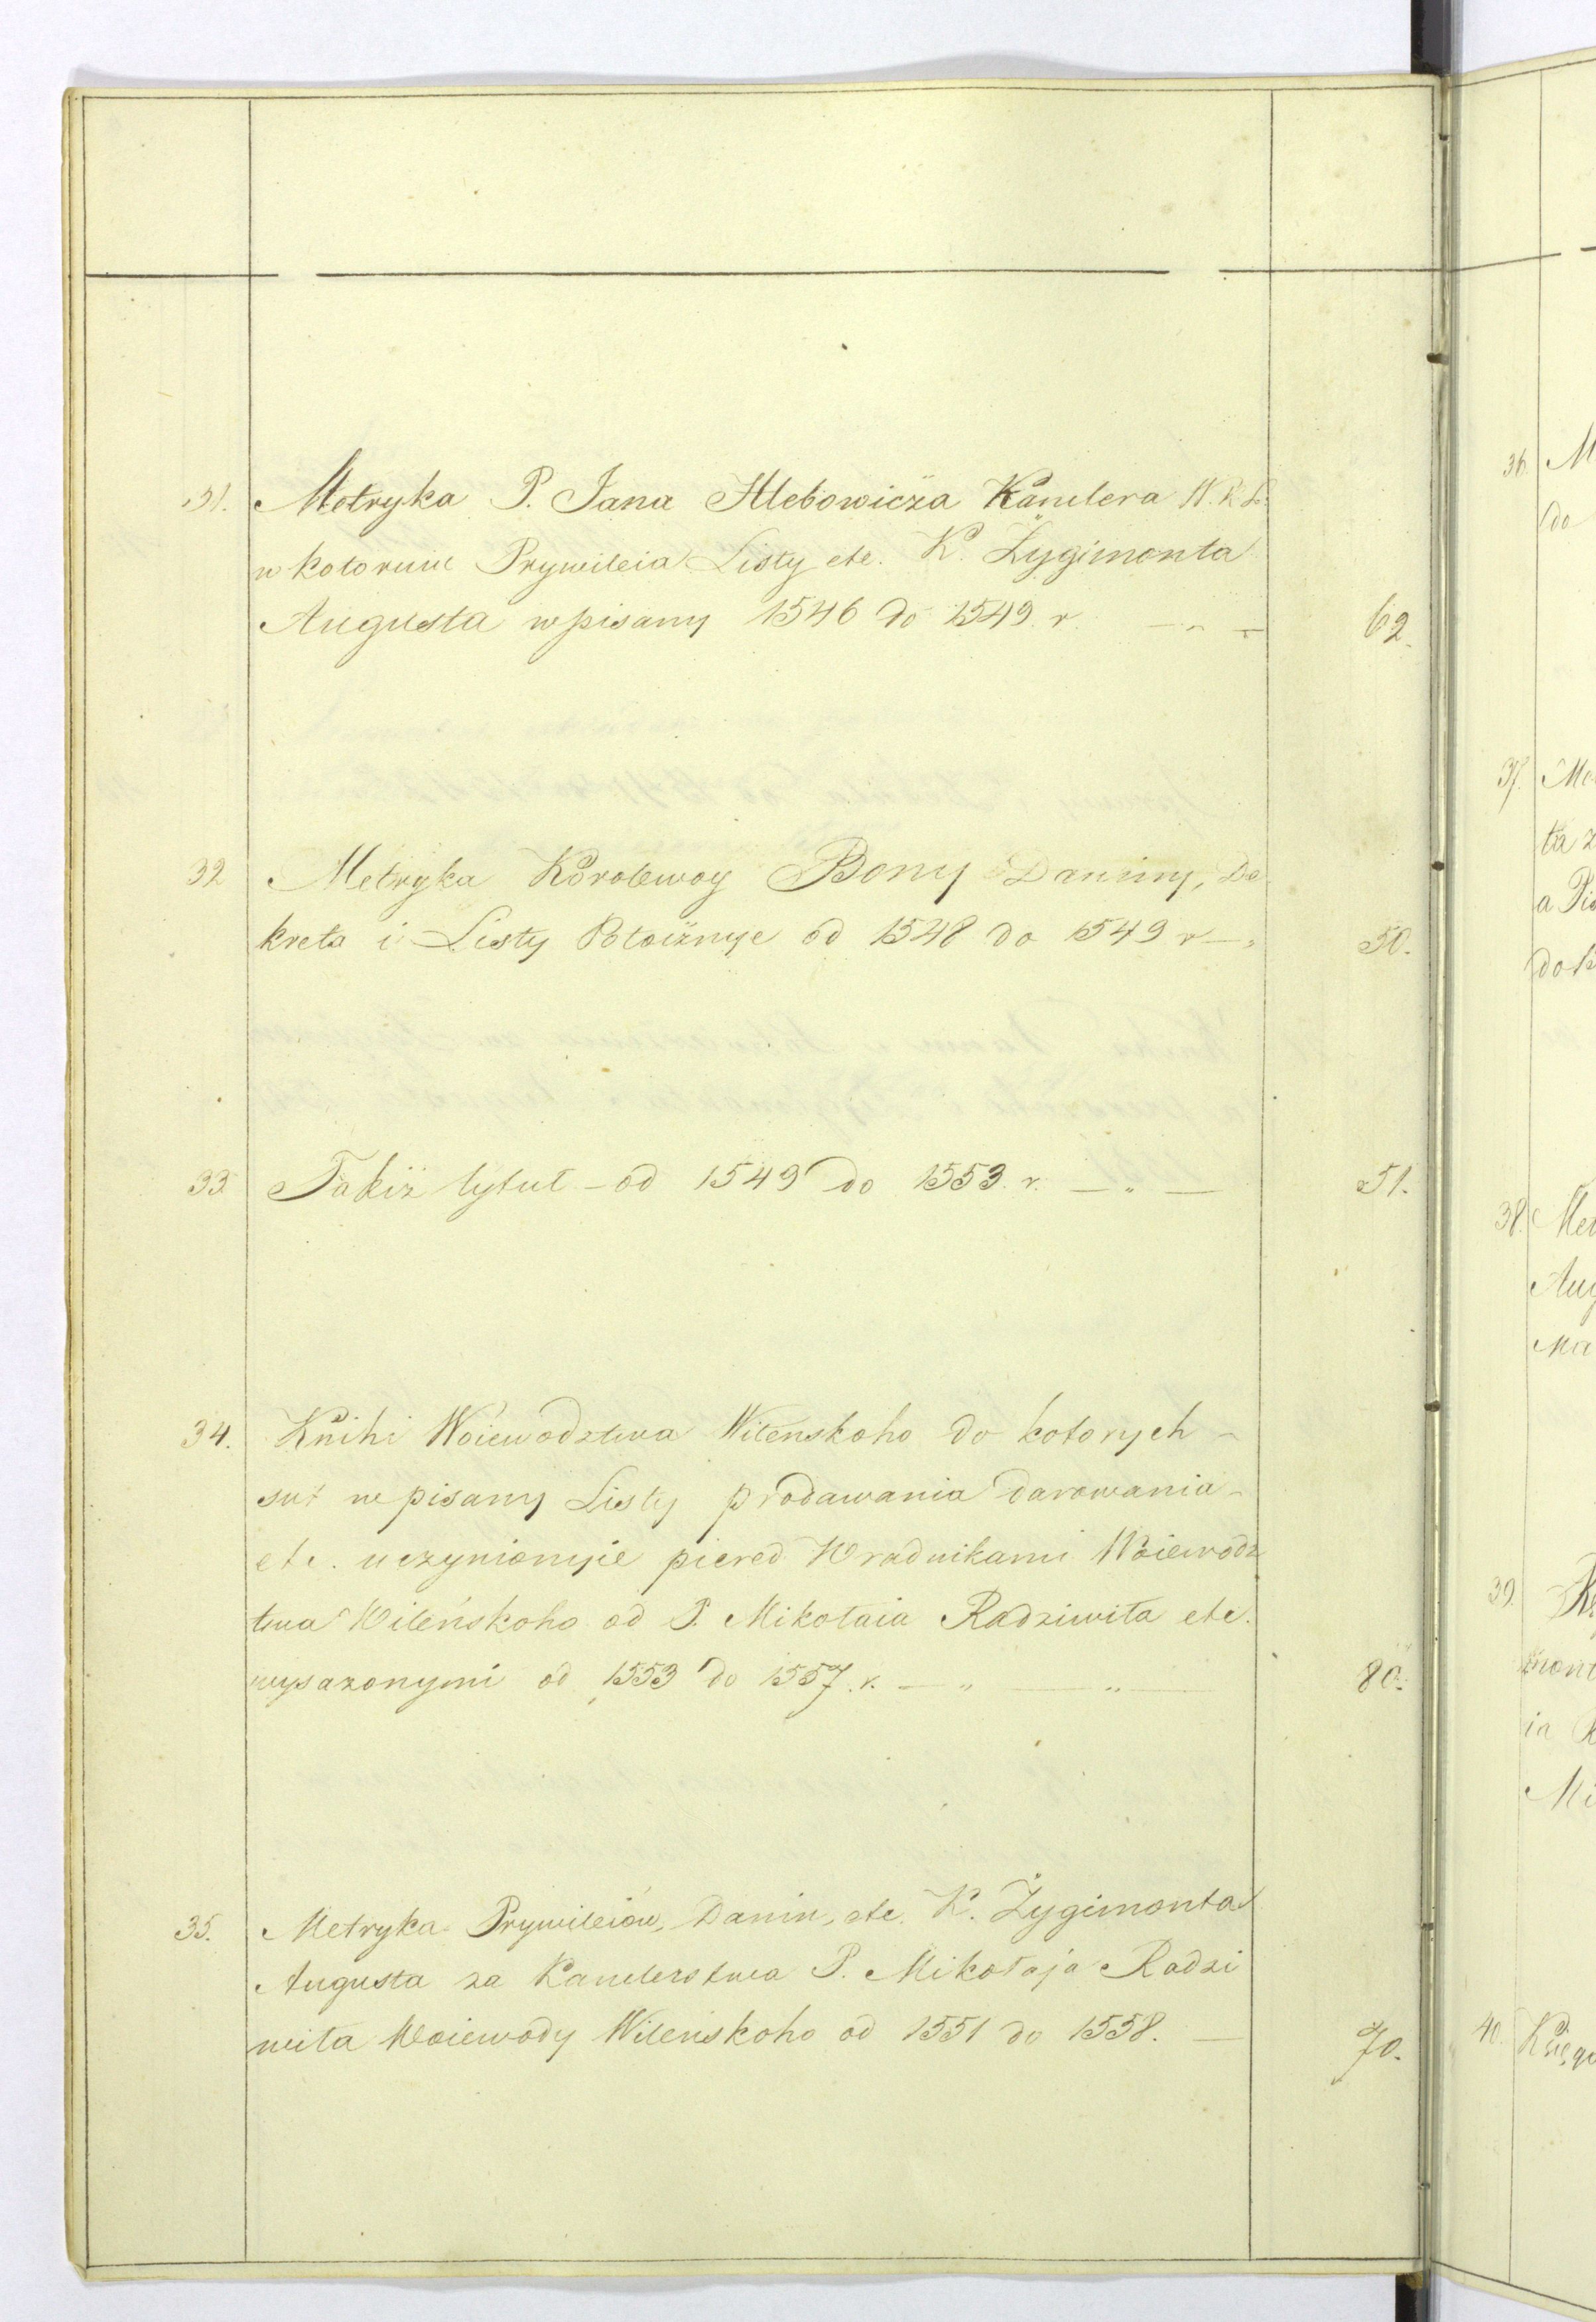 31. Metryka P. Jana Hlebowicza Kanclera W. X L.
w kotoruie Prywileia Listy etc. K. Zygimonta
Augusta wpisany 1546 do 1549. r. 62.
32 Metryka Korolewoy Bony Daniny, De
kreta i Listy Potoiznyie od 1548 do 1549 r 50.
33. Takiż tytuł - od 1549 do 1553. r. 51.
34. Knihi Woiewodztwa Wilenskoho do kotorych
sut wpisany Listy prodawania darowania
etc. uczynionyie piered Wradnikami Woiewodz
twa Wileńskoho od P. Mikołaia Radziwiła etc.
wysazonymi od 1553 do 1557. r. 80.
35. Metryka Prywileiów, Danin, etc. K. Zygimonta
Augusta za Kanclerstwa P. Mikołaja Radzi
wiła Woiewody Wileńskoho od 1551 do 1558. 70.
36. M
do
37. Me
ta z
a Pis
do K
38. Met
Aug
Ma
39.
mont
ia R
Mi
40. Księga